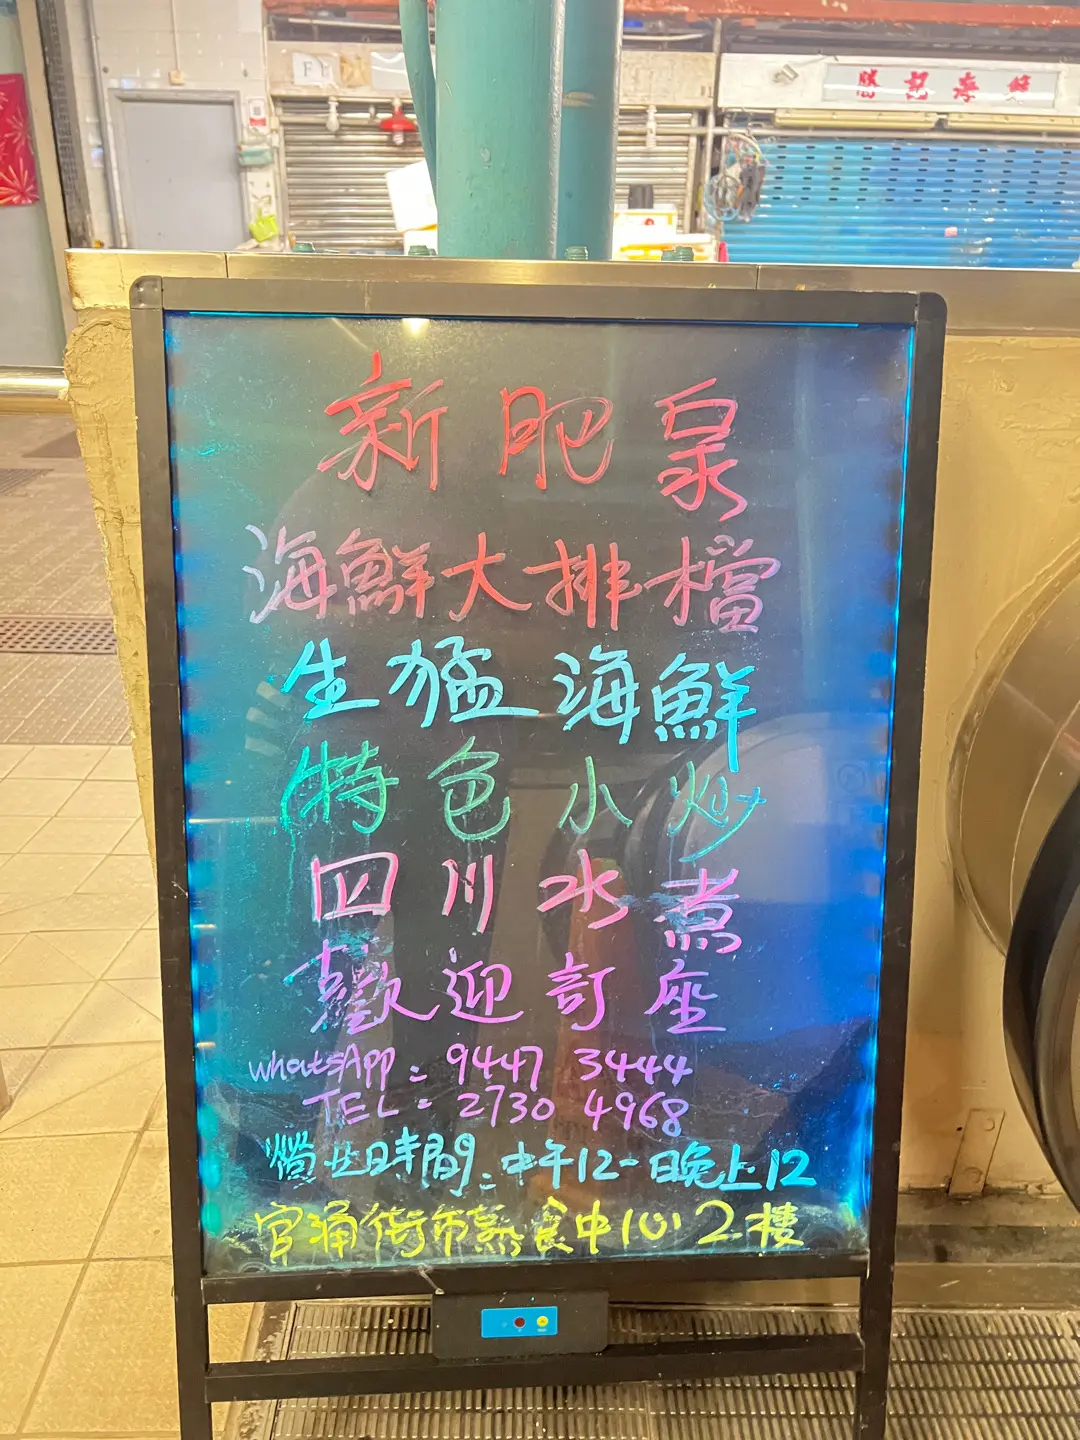 勝記海鮮
新肥泉
海鮮大排檔
生猛海鮮
特色小炒
四川水煮
歡迎訂座
WhatsApp: 9447 3444
TEL: 2730 4968
營业時間: 中午12-晚上12
官涌街市熟食中心2樓